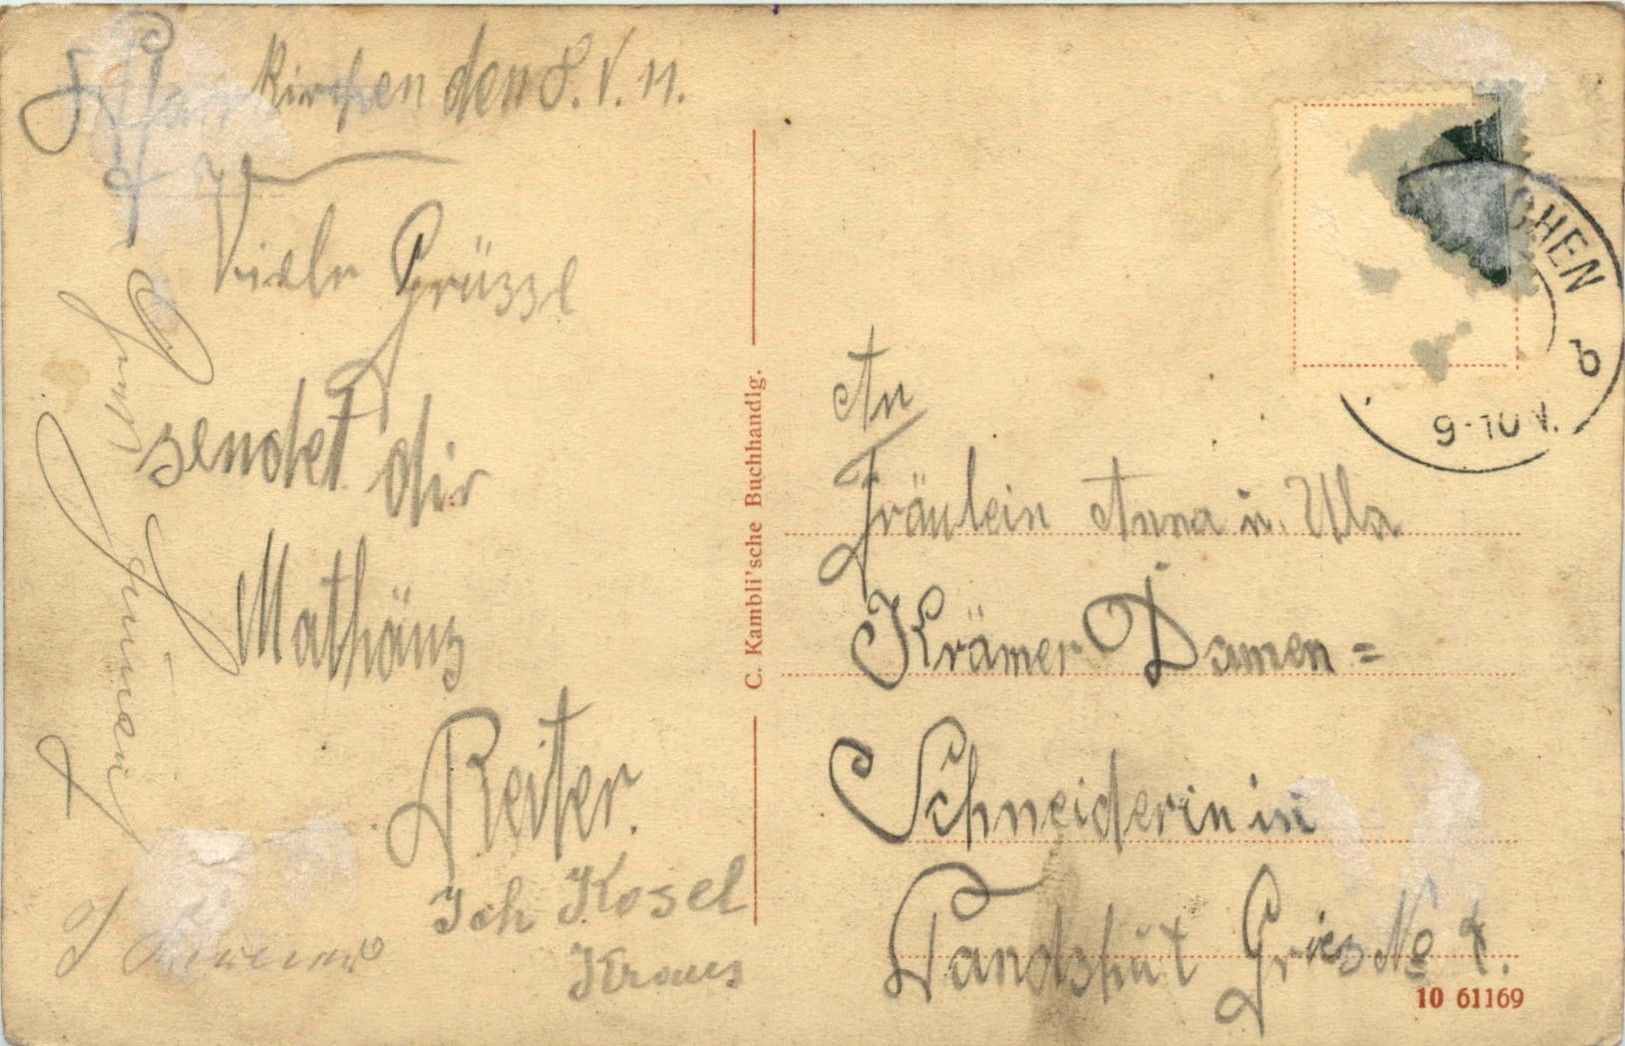 Pfarrkirchen den 8. V. 11.
Viele Grüsse
sendet dir
Mathäus
Reiter.
Joh Kosel
Kraus
C. Kambli'sche Buchhandlg.
CHEN
b
9-10 V.
An
Fräulein Anna u.
Krämer Damen=
Schneiderin in
Landshut Gries No
10 61169